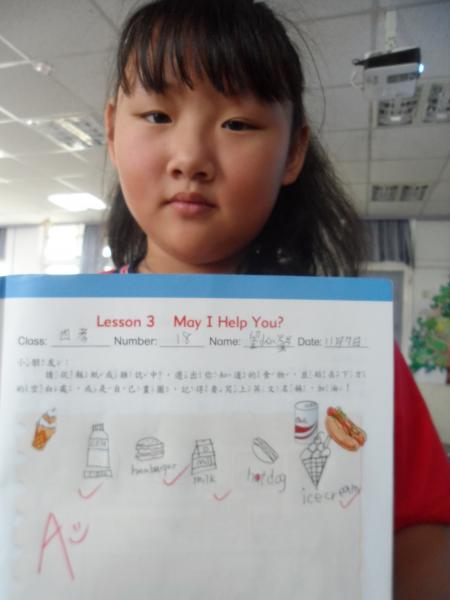 Lesson 3 May I Help You?
Class: 四孝 Number: 18 Name: Date: 11月7日
小朋友：
請從報紙或雜誌中，選出你知道的食物，並貼在下方
的空白處，或是自己畫圖，記得要寫上英文名稱，加油！
hamburger milk hotdog
ice cream
A